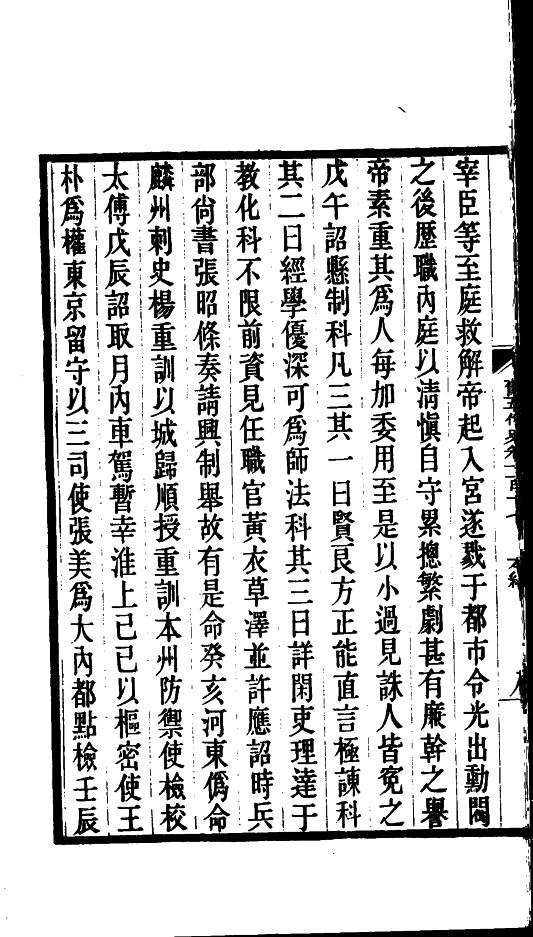 舊五代史卷一百十七　本紀　八
宰臣等至庭救解帝起入宮遂戮于都市令光出勳閥
之後歷職內庭以清愼自守累摠繁劇甚有廉幹之譽
帝素重其爲人每加委用至是以小過見誅人皆寃之
戊午詔懸制科凡三其一曰賢良方正能直言極諫科
其二曰經學優深可爲師法科其三曰詳閑吏理達于
教化科不限前資見任職官黃衣草澤並許應詔時兵
部尚書張昭條奏請興制舉故有是命癸亥河東僞命
麟州刺史楊重訓以城歸順授重訓本州防禦使檢校
太傅戊辰詔取月內車駕暫幸淮上己巳以樞密使王
朴爲權東京留守以三司使張美爲大內都點檢壬辰